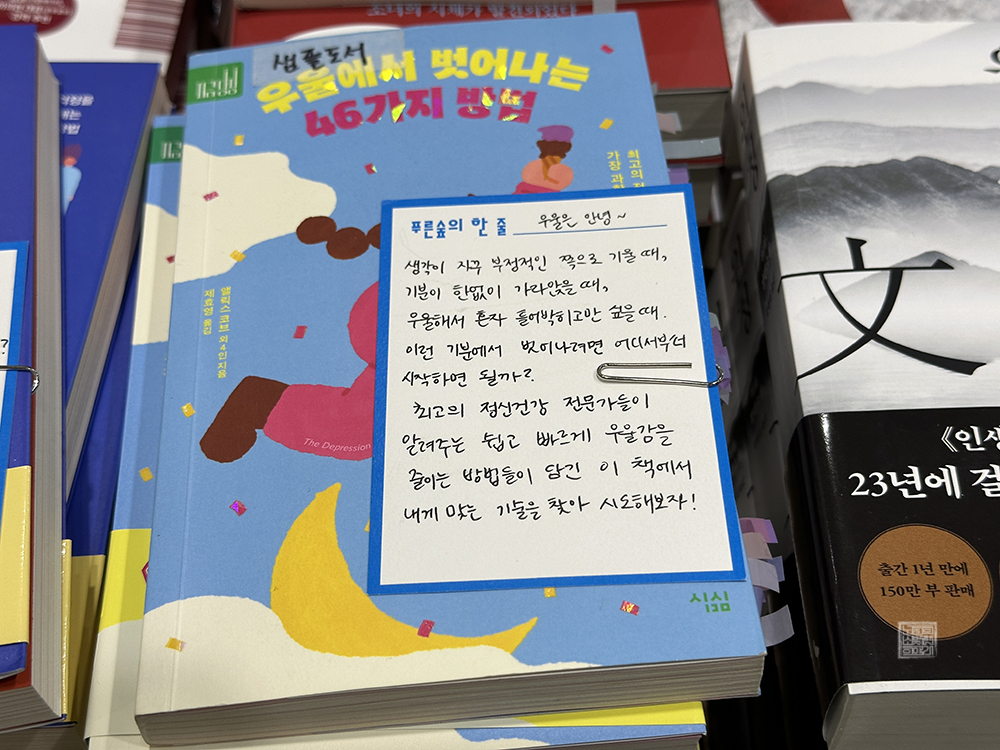 소녀의 지혜가
샘플도서
우울에서 벗어나는
46가지 방법
최고의
가장
앨릭스 코브 외 4인 지음
제효영 옮김
The Depression
푸른숲의 한 줄 우울은 안녕~
생각이 자꾸 부정적인 쪽으로 기울 때,
기분이 한없이 가라앉을 때,
우울해서 혼자 틀어박히고만 싶을 때.
이런 기분에서 벗어나려면 어디서부터
시작하면 될까?
최고의 정신건강 전문가들이
알려주는 쉽고 빠르게 우울감을
줄이는 방법들이 담긴 이 책에서
내게 맞는 기술을 찾아 시도해보자!
심심
文
《인생
23년에 걸
출간 1년 만에
150만 부 판매